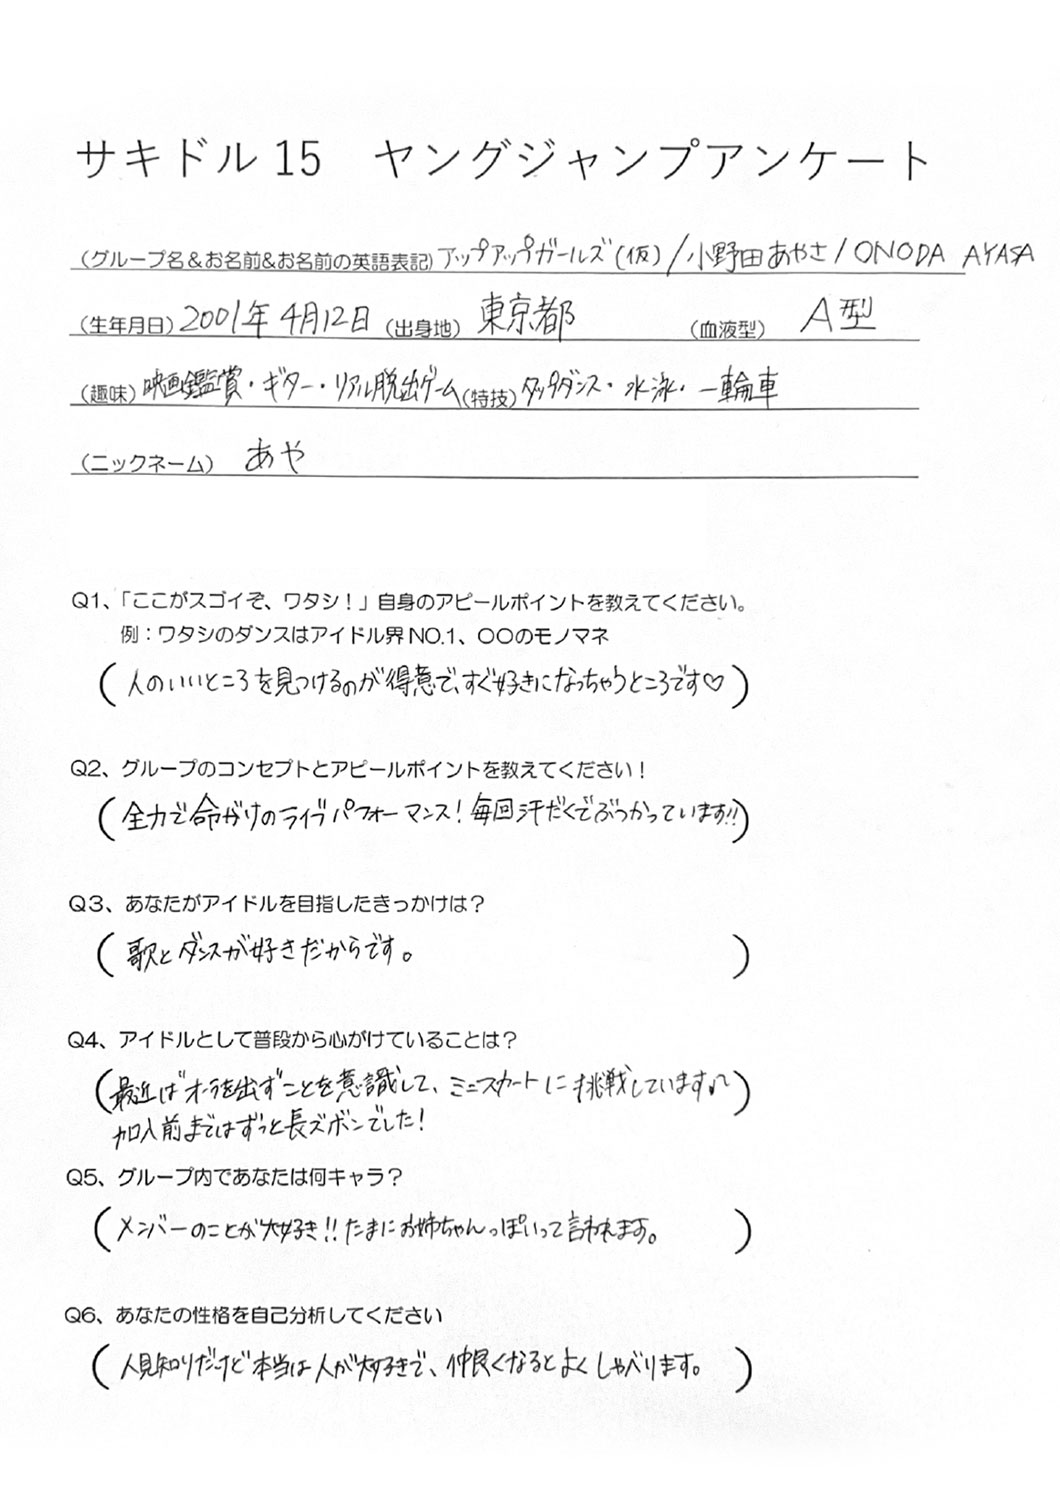 サキドル15　ヤングジャンプアンケート
(グループ名&お名前&お名前の英語表記) アップアップガールズ(仮)/小野田あやさ/ONODA AYASA
(生年月日) 2001年4月12日 (出身地) 東京都 (血液型) A型
(趣味) 映画鑑賞・ギター・リアル脱出ゲーム (特技) タップダンス・水泳・一輪車
(ニックネーム) あや
Q1、「ここがスゴイぞ、ワタシ！」自身のアピールポイントを教えてください。
例：ワタシのダンスはアイドル界NO.1、〇〇のモノマネ
(人のいいところを見つけるのが得意で、すぐ好きになっちゃうところです♡)
Q2、グループのコンセプトとアピールポイントを教えてください！
(全力で命がけのライブパフォーマンス！毎回汗だくでぶつかっています!!)
Q3、あなたがアイドルを目指したきっかけは？
(歌とダンスが好きだからです。)
Q4、アイドルとして普段から心がけていることは？
(最近は"オーラを出す"ことを意識して、ミニスカートに挑戦しています♪)
加入前まではずっと長ズボンでした！
Q5、グループ内であなたは何キャラ？
(メンバーのことが大好き!!たまにお姉ちゃんっぽいって言われます。)
Q6、あなたの性格を自己分析してください
(人見知りだけど本当は人が大好きで、仲良くなるとよくしゃべります。)